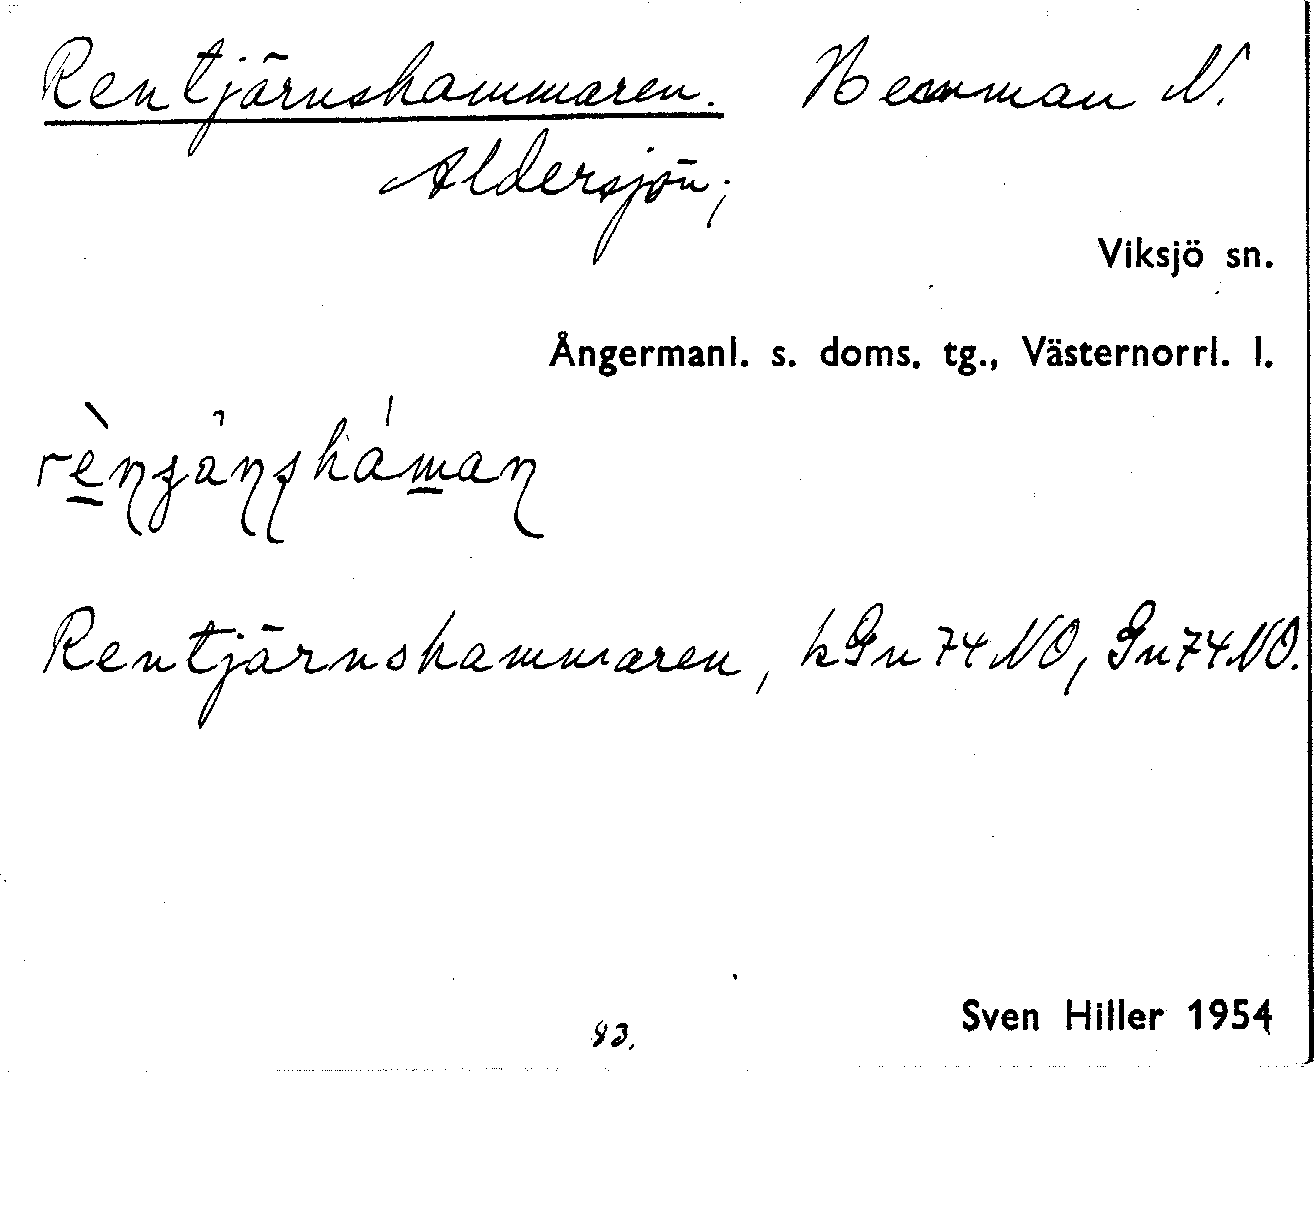 Rentjärnshammaren. Hemman N.
Aldersjön;
Viksjö sn.
Ångermanl. s. doms. tg., Västernorrl. l.
Rentjärnshammaren, kGn74NO, Gn74NO.
93.
Sven Hiller 1954